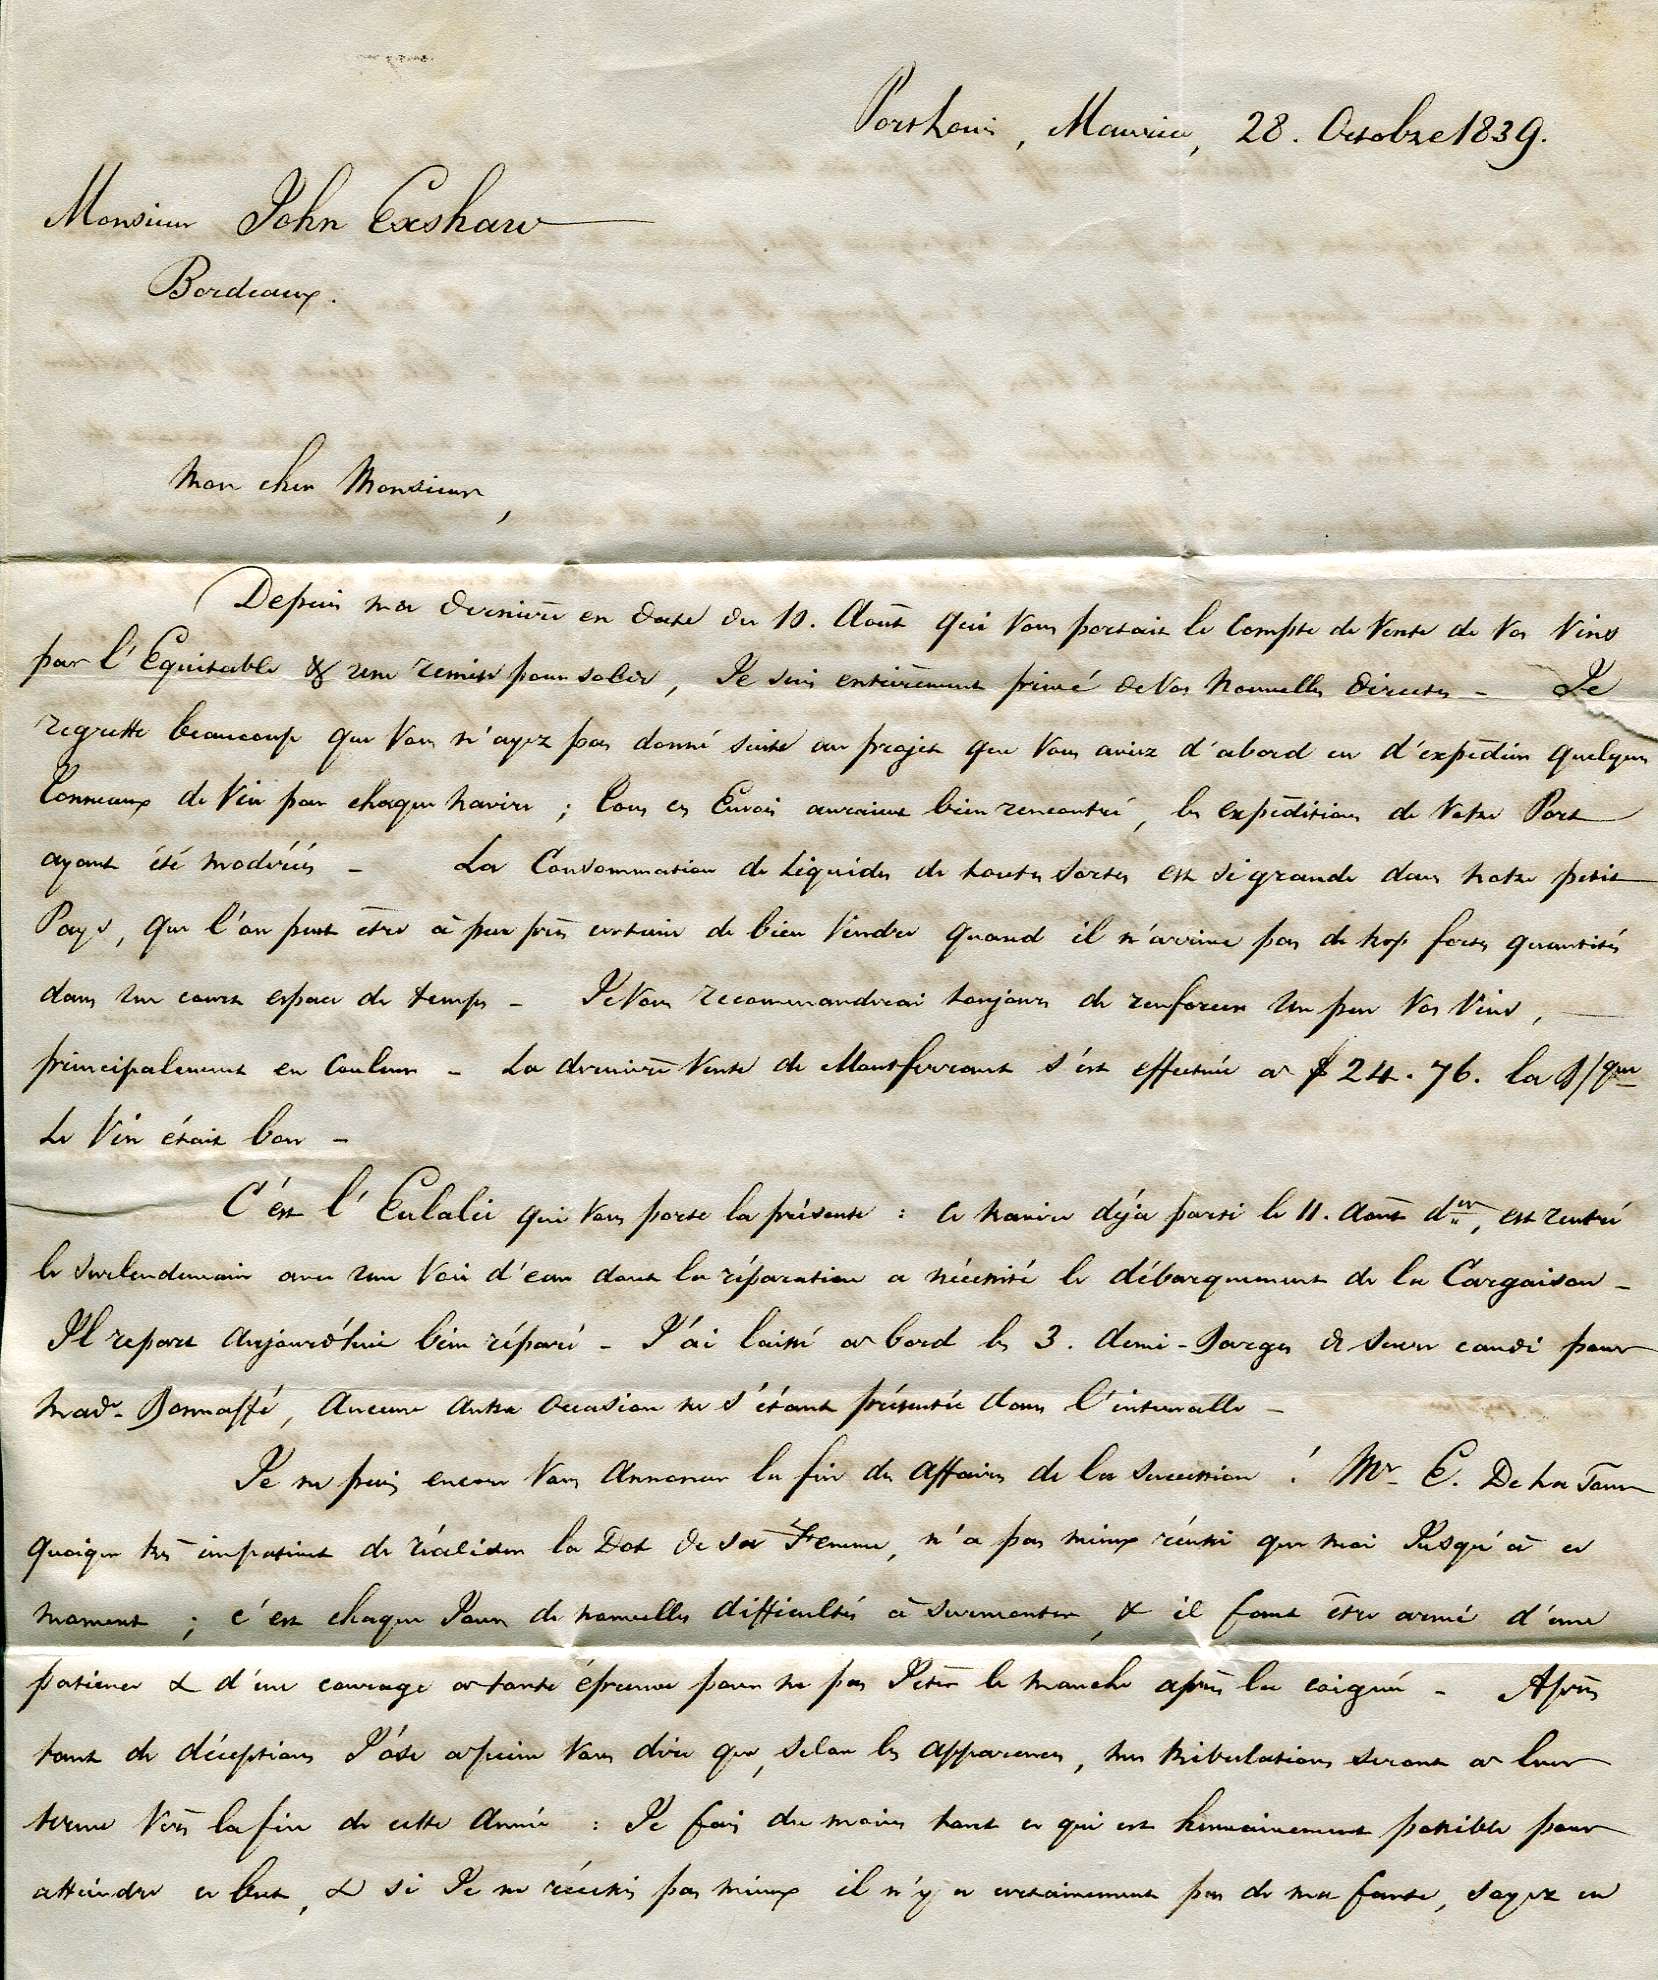 Port Louis, Maurice, 28. Octobre 1839.
Monsieur John Exshaw
Bordeaux.
Mon cher Monsieur,
Depuis ma dernière en date du 10. Août qui vous portait le Compte de Vente de Vos Vins
par l'Equitable & une remise pour solde, Je suis entièrement privé de Vos nouvelles directes - Je
regrette beaucoup que Vous n'ayez pas donné suite au projet que Vous aviez d'abord eu d'expédier quelques
Tonneaux de Vin par chaque navire ; Tous ces Envois auraient bien rencontré, les expéditions de Votre Port
ayant été modérées - La Consommation de Liquides de toutes sortes est si grande dans notre petit
Pays, que l'on peut être à peu près certain de bien Vendre quand il n'arrive pas de trop fortes quantités
dans un court espace de temps - Je Vous recommanderai toujours de renforcer un peu Vos Vins,
principalement en Couleur - La dernière Vente de Montferrant s'est effectuée a $ 24.76. la B/que
Le Vin était bon -
C'est l'Eulalie qui Vous porte la présente : ce navire déjà parti le 11. Août der, est rentré
le surlendemain avec une Voie d'eau dont la réparation a nécessité le débarquement de la Cargaison -
Il repart aujourd'hui bien réparé - J'ai laissé a bord les 3. demi-Barges de sucre candi pour
Made Bonnaffé, aucune autre occasion ne s'étant présentée dans l'intervalle -
Je ne puis encore Vous annoncer la fin des affaires de la succession ! Mr E. De La Tour
quoique très impatient de réaliser la Dot de sa Femme, n'a pas mieux réussi que moi Jusqu'à ce
moment ; c'est chaque Jour de nouvelles difficultés à surmonter, & il faut être armé d'une
patience & d'un courage a toute épreuve pour ne pas Jeter le manche après la coignée - Après
tant de déceptions J'ose a peine Vous dire que, selon les apparences, mes tribulations seront a leur
terme Vers la fin de cette année : Je fais du moins tout ce qui est humainement possible pour
atteindre ce but, & si Je ne réussis pas mieux il n'y a certainement pas de ma faute, soyez en